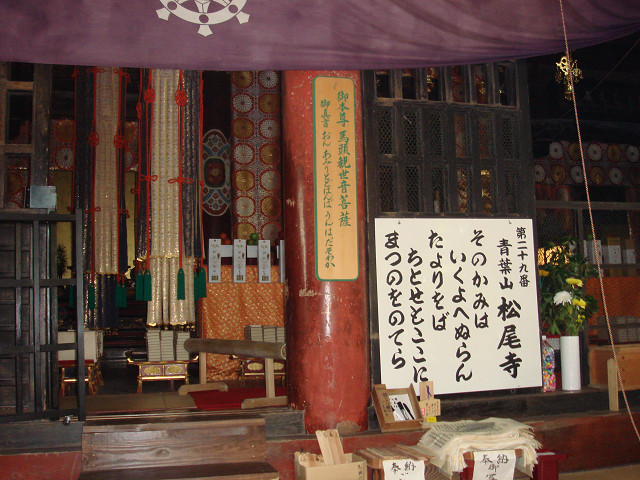 御本尊 馬頭観世音菩薩
御真言 おん あみりとどはんば うんはったそわか
第二十九番
青葉山 松尾寺
そのかみは
いくよへぬらん
たよりをば
ちとせもここに
まつのをのてら
奉納
奉納